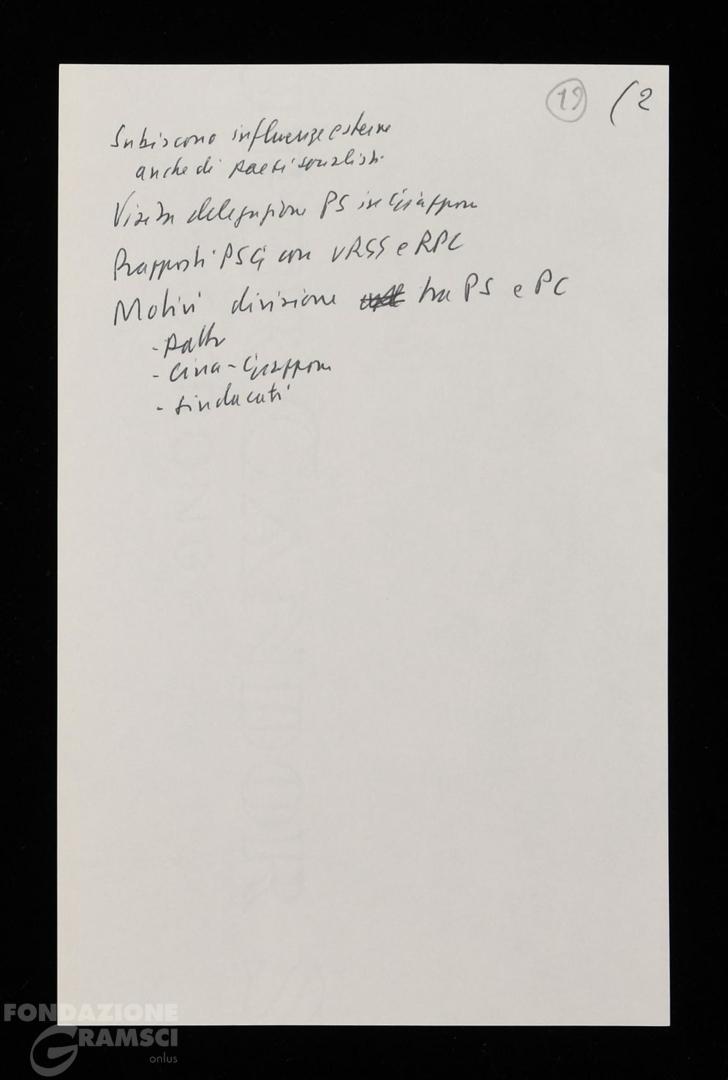 19 (2
Subiscono influenze esterne
anche di paesi socialisti
Visita delegazione PS in Giappone
Rapporti PSG con URSS e RPC
Motivi divisione tra PS e PC
- Patto
- Cina-Giappone
- sindacati
FONDAZIONE
GRAMSCI
onlus